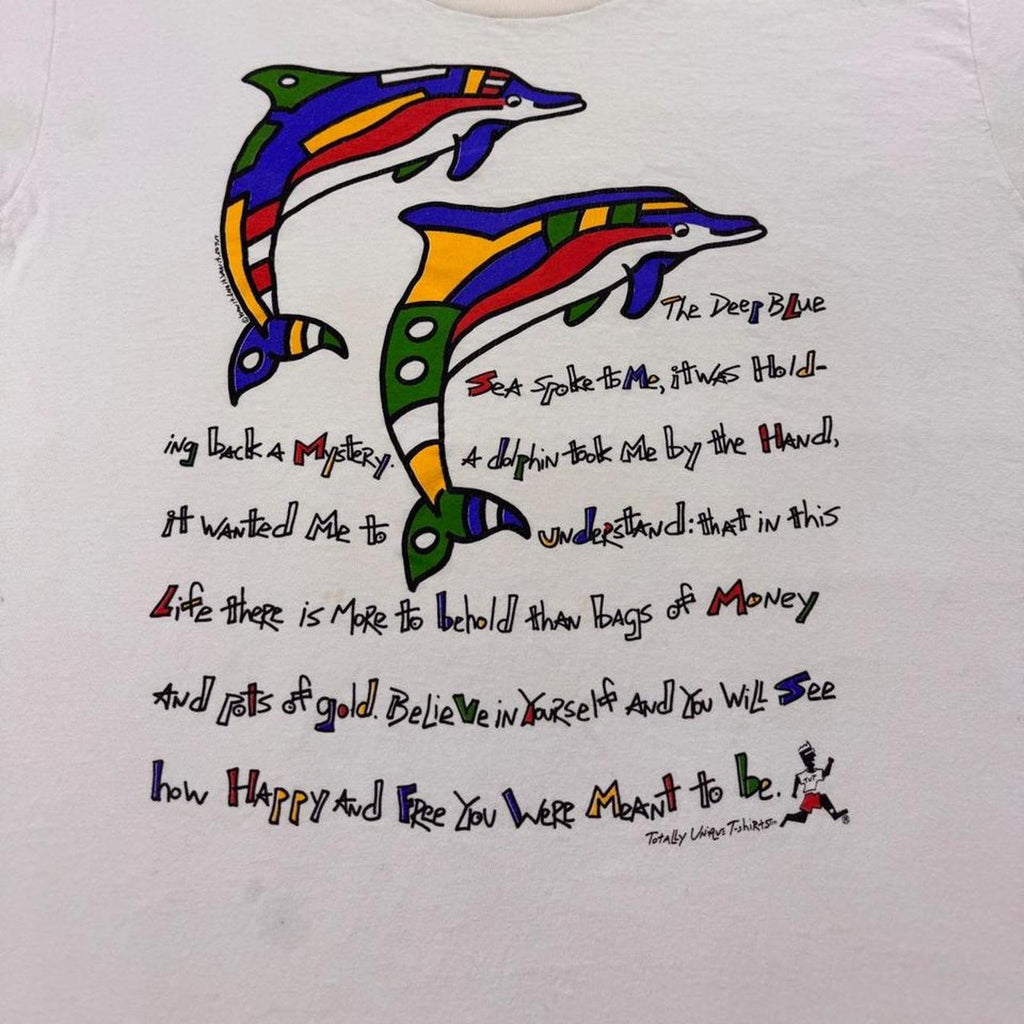 The Deep Blue
Sea spoke to Me, it was Hold-
ing back a Mystery. A dolphin took Me by the Hand,
it wanted Me to understand: that in this
Life there is More to behold than bags of Money
And pots of gold. Believe in Yourself And You Will See
how Happy And Free You Were Meant to be.
TUT
Totally Unique T-shirts™ ®